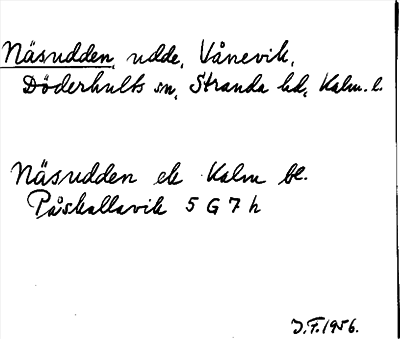 Näsudden, udde, Vånevik,
Döderhults sn, Stranda hd, Kalm. l.
Näsudden ek Kalm bl.
Påskallavik 5 G 7 h
J.F. 1956.